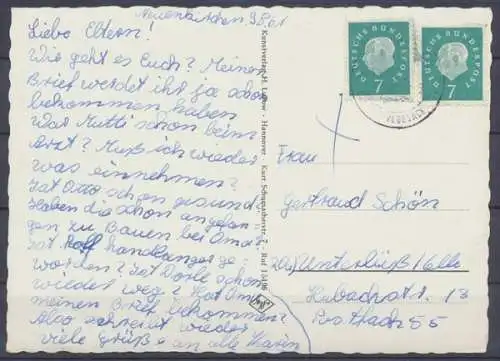 Neuenkirchen 9.8.61
Liebe Eltern!
Wie geht es Euch? Meinen
Brief werdet ihr ja schon
bekommen haben
War Mutti schon beim
Arzt? Muß ich wieder
was einnehmen?
Hat Otto schon gesund
Haben die schon angefan-
gen zu Bauen bei Oma
Hat Rolf handlanger ge-
worden? Hat Dorle schon
wieder weg? Hat Oma
meinen Brief bekommen?
Also schreibt wieder
viele grüße an alle Karin
Kunstverlag H. Hannover - Kurt Schumacherstr. 7 - Ruf
DEUTSCHE BUNDESPOST
7
DEUTSCHE BUNDESPOST
7
Frau
Gertraud Schön
Unterlüß / Celle
Hubachstr. 13
Postfach 55